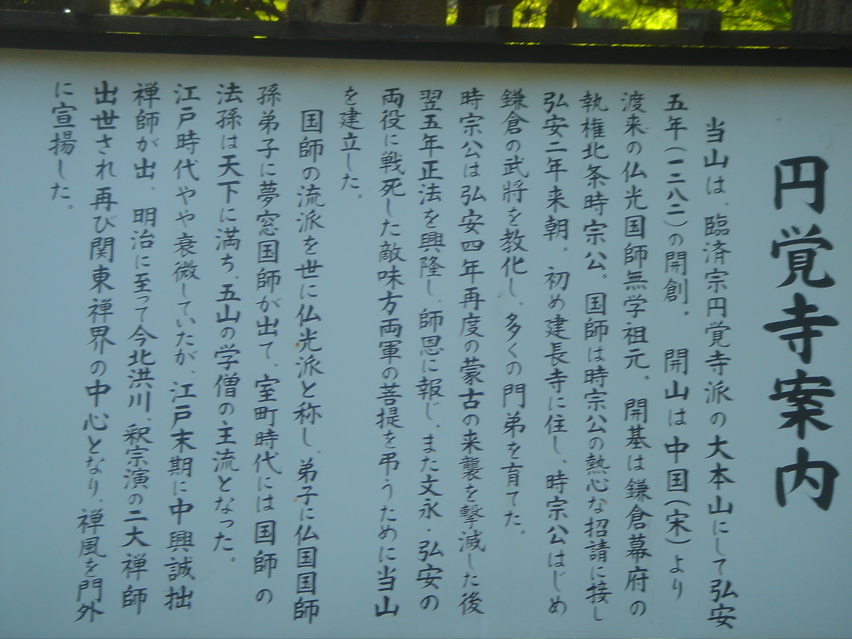 円覚寺案内
当山は、臨済宗円覚寺派の大本山にして弘安
五年(一二八二)の開創。 開山は中国(宋)より
渡来の仏光国師無学祖元。開基は鎌倉幕府の
執権北条時宗公。国師は時宗公の熱心な招請に接し
弘安二年来朝。初め建長寺に住し、時宗公はじめ
鎌倉の武将を教化し、多くの門弟を育てた。
時宗公は弘安四年再度の蒙古の来襲を撃滅した後
翌五年正法を興隆し、師恩に報じ、また文永・弘安の
両役に戦死した敵味方両軍の菩提を弔うために当山
を建立した。
国師の流派を世に仏光派と称し、弟子に仏国国師
孫弟子に夢窓国師が出て、室町時代には国師の
法孫は天下に満ち、五山の学僧の主流となった。
江戸時代やや衰微していたが、江戸末期に中興誠拙
禅師が出、明治に至って今北洪川、釈宗演の二大禅師
出世され再び関東禅界の中心となり、禅風を門外
に宣揚した。